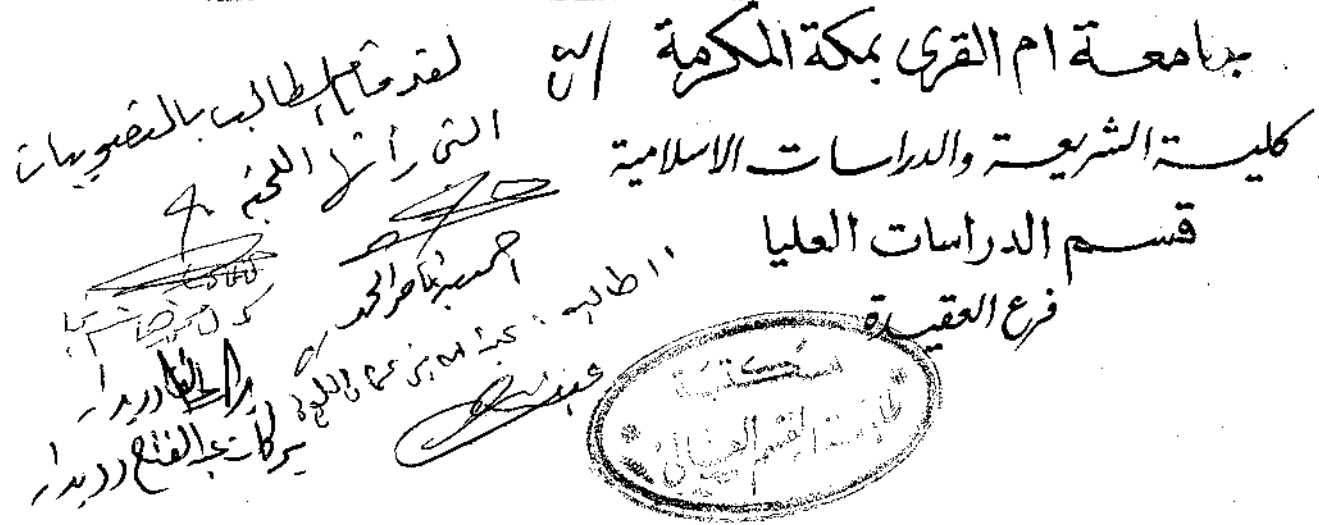 جامعة ام القرى بمكة المكرمة
كلية الشريعة والدراسات الاسلامية
قسم الدراسات العليا
فرع العقيدة
لقد قام الطالب بالتصويبات
التى رأتها اللجنة
احمد بن ناصر الحمد
الطالب: عبد الله بن
بركات عبد الفتاح دويدار
مكتبة